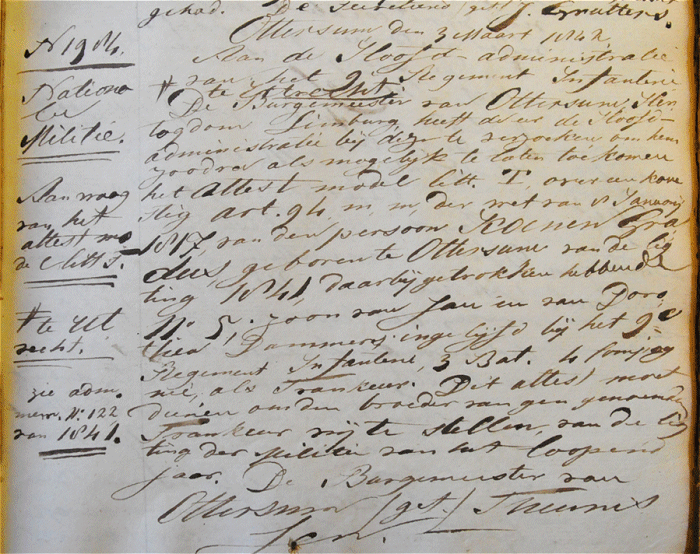 gehad. De Secretaris (get) J. Gratters.
Ottersum den 3 Maart 1842
N 19 84.
Nationa
le
Militie.
Aanvraag
van het
attest mo
del litt T.
# te Ut
recht.
zie adm:
mem. N: 122
van 1841.
Aan de Hoofd-administratie
# van het 9e Regement Infanterie
te Utrecht
De Burgemeester van Ottersum, Her
togdom Limburg, heeft de eer de Hoofd-
administratie bij deze te verzoeken om hem
zoodra als mogelijk te laten toekomen
het attest model litt. T, overeenkom
stig art. 94, m, m, der wet van 8 January
1817, van den persoon KOENEN Gra
dus, geboren te Ottersum van de lig
ting 1841, daarbij getrokken hebbende
N: 5, zoon van Jan en van Doro
thea Dammers, ingelijfd bij het 9e
Regement Infanterie, 3 Bat. 4 Compag
nie, als Trankeur. Dit attest moet
dienen om den broeder van gen genoemden
Trankeur vrij te stellen, van de lig
ting der Militie van het loopend
jaar. De Burgemeester van
Ottersum (get.) Theunis